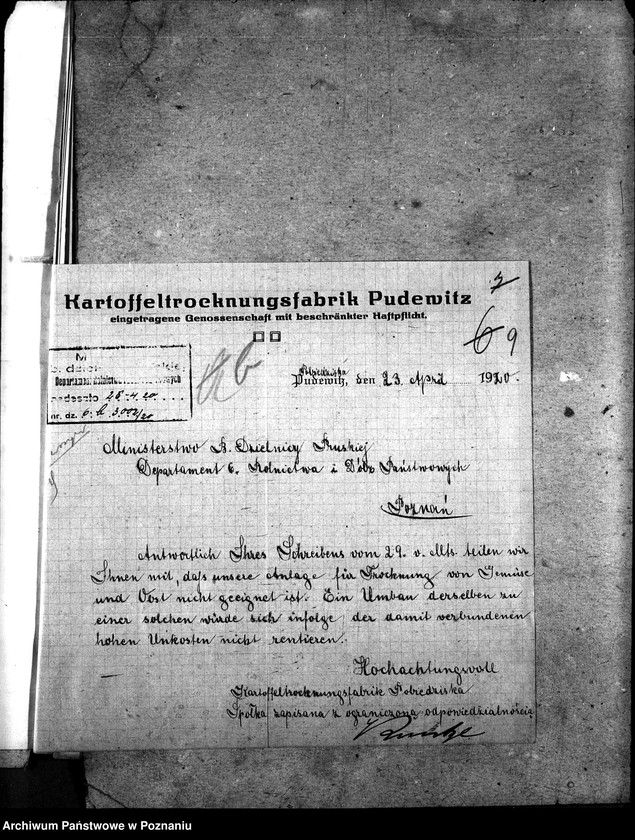 7
Kartoffeltrocknungsfabrik Pudewitz
eingetragene Genossenschaft mit beschränkter Haftpflicht.
6 9
M
b. dzieln
Departament
nadeszło 28.4.20
nr. dz. 6. 3.002/20
Pudewitz, den 23. April 1920.
Ministerstwo B. Dzielnicy Pruskiej
Departament 6. Rolnictwa i Dóbr Państwowych
Poznań
Antwortlich Ihres Schreibens vom 29. v. Mts. teilen wir
Ihnen mit, daß unsere Anlage für Trocknung von Gemüse
und Obst nicht geeignet ist. Ein Umbau derselben zu
einer solchen würde sich infolge der damit verbundenen
hohen Unkosten nicht rentieren.
Hochachtungsvoll
Kartoffeltrocknungsfabrik Pobredziska
Spółka zapisana z ograniczoną odpowiedzialnością
Archiwum Państwowe w Poznaniu